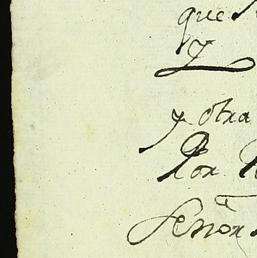 que
y
y otra
Por
Señor